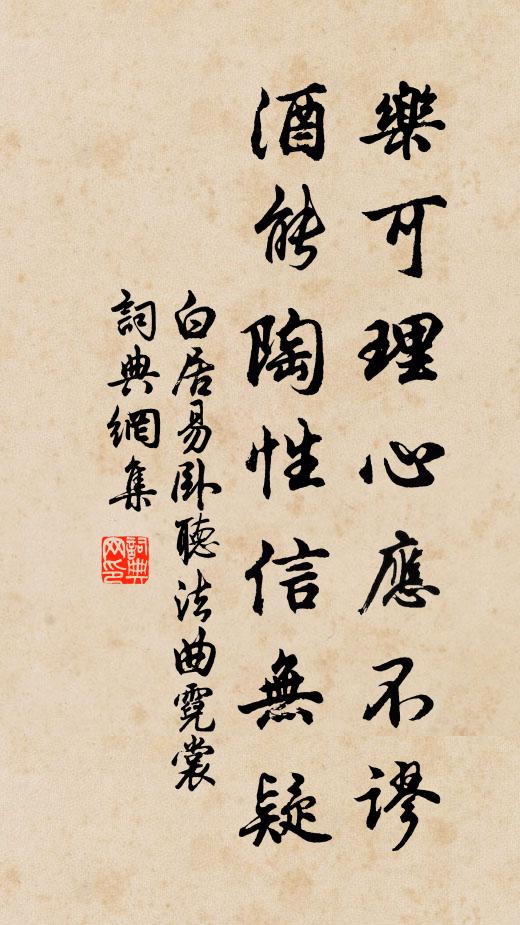 樂可理心應不謬
酒能陶性信無疑
白居易臥聽法曲霓裳
詞典網集
詞典網印